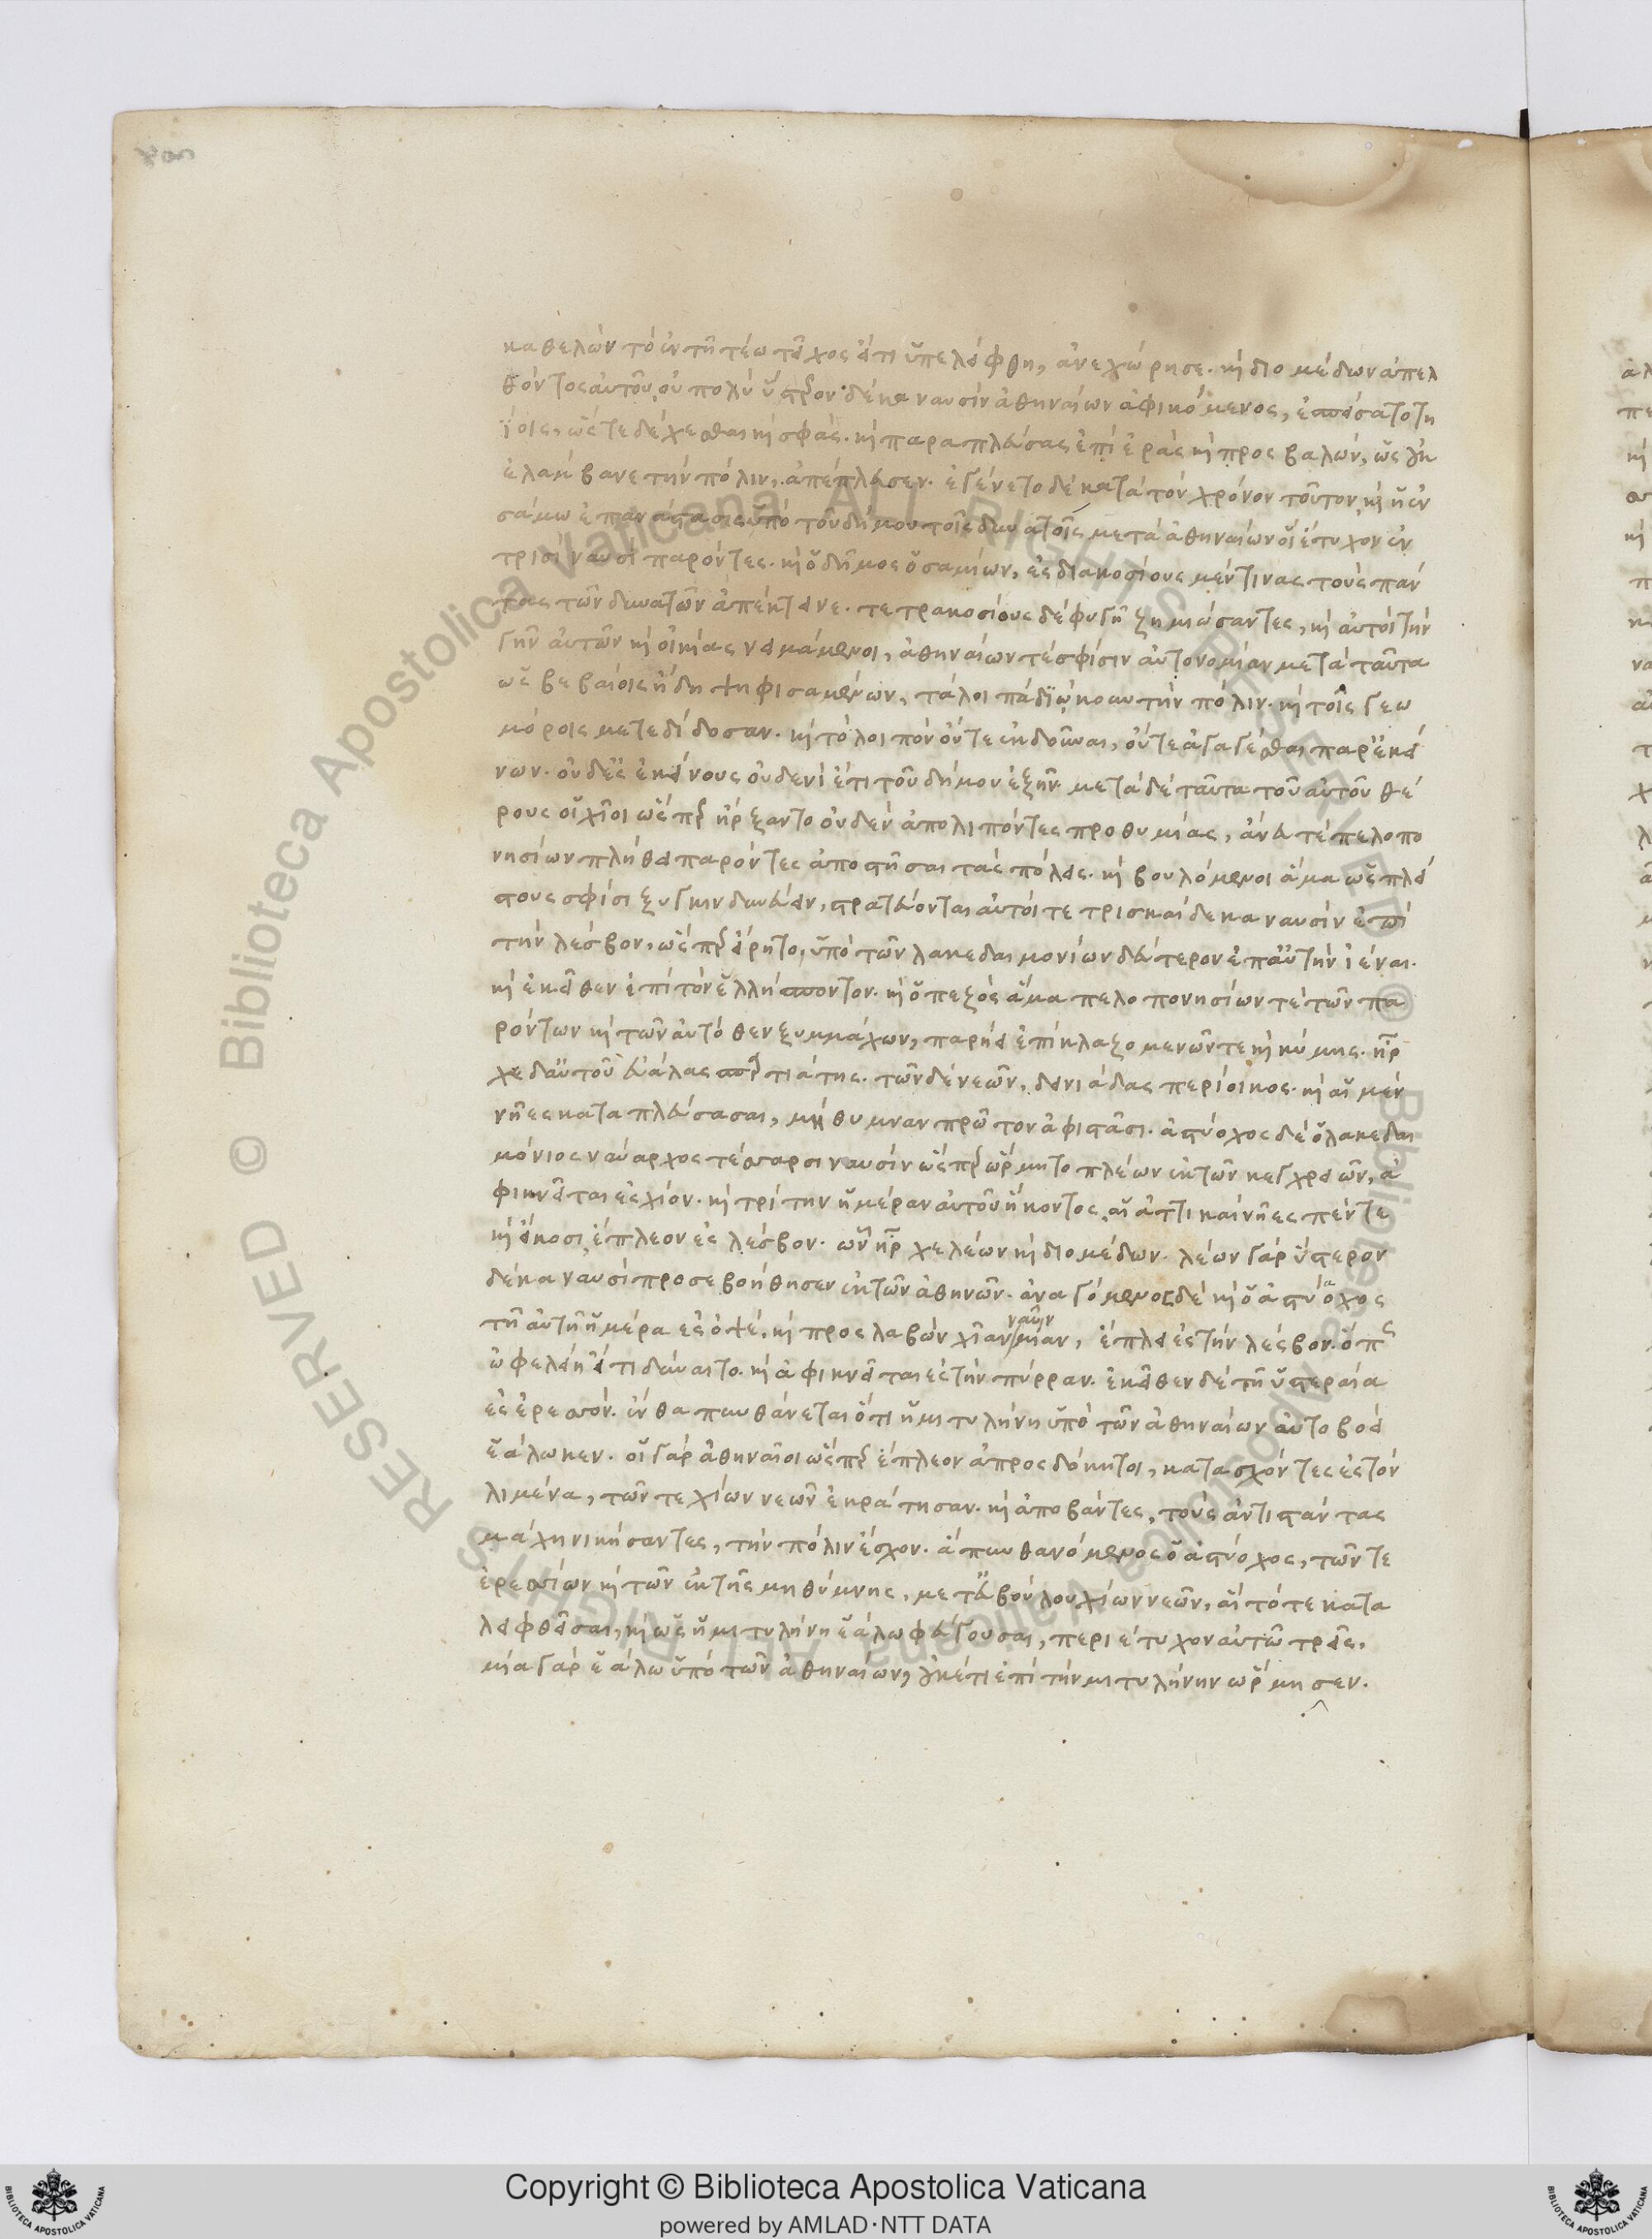 καθελὼν τὸ ἐν τῆ τέω τεῖχος εἴ τι ὑπελείφθη, ἀνεχώρησε. καὶ διομέδων ἀπελ
θόντος αὐτοῦ, οὐ πολὺ ὕστερον δέκα ναυσὶν ἀθηναίων ἀφικόμενος, ἐσπείσατο τη
ΐοις, ὥστε δέχεσθαι καὶ σφᾶς. καὶ παραπλεύσας ἐπὶ ἐρὰς καὶ προσβαλὼν, ὡς οὐκ
ἐλάμβανε τὴν πόλιν, ἀπέπλευσεν. ἐγένετο δὲ κατὰ τὸν χρόνον τοῦτον καὶ ἡ ἐν
σάμω ἐπανάστασις ὑπὸ τοῦ δήμου τοῖς δυνατοῖς μετὰ ἀθηναίων οἳ ἔτυχον ἐν
τρισὶ ναυσὶ παρόντες. καὶ ὁ δῆμος ὁ σαμίων, ἐς διακοσίους μέν τινας τοὺς πάν
τας τῶν δυνατῶν ἀπέκτεινε. τετρακοσίους δὲ φυγῆ ζημιώσαντες, καὶ αὐτοὶ τὴν
γῆν αὐτῶν καὶ οἰκίας νειμάμενοι, ἀθηναίων τέ σφίσιν αὐτονομίαν μετὰ ταῦτα
ὡς βεβαίοις ἤδη ψηφισαμένων, τὰ λοιπὰ διώκουν τὴν πόλιν. καὶ τοῖς γεω
μόροις μετεδίδοσαν. καὶ τὸ λοιπὸν οὔτε ἐκδοῦναι, οὔτε ἀγαγέσθαι παρ' ἐκεί
νων. οὐδ' ἐς ἐκείνους οὐδενὶ ἔτι τοῦ δήμου ἐξῆν. μετὰ δὲ ταῦτα τοῦ αὐτοῦ θέ
ρους οἱ χῖοι ὥσπερ ἤρξαντο οὐδὲν ἀπολιπόντες προθυμίας, ἄνευ τὲ πελοπο
νησίων πλήθει παρόντες ἀποστῆσαι τὰς πόλεις. καὶ βουλόμενοι ἅμα ὡς πλεί
στους σφίσι ξυγκινδυνεύειν, στρατεύονται αὐτοί τε τρισκαίδεκα ναυσὶν ἐπὶ
τὴν λέσβον, ὥσπερ εἴρητο, ὑπὸ τῶν λακεδαιμονίων δεύτερον ἐπ' αὐτὴν ἰέναι.
καὶ ἐκεῖθεν ἐπὶ τὸν ἑλλήσποντον. καὶ ὁ πεζὸς ἅμα πελοπονησίων τὲ τῶν πα
ρόντων καὶ τῶν αὐτόθεν ξυμμάχων, παρήει ἐπὶ κλαζομενῶν τε καὶ κύμης. ἦρ
χε δ' αὐτοῦ εὐάλας σπαρτιάτης. τῶν δὲ νεῶν, δεινιάδας περίοικος. καὶ αἱ μὲν
νῆες καταπλεύσασαι, μήθυμναν πρῶτον ἀφιστᾶσι. ἀστύοχος δὲ ὁ λακεδαι
μόνιος ναύαρχος τέσσαρσι ναυσὶν ὥσπερ ὥρμητο πλέων ἐκ τῶν κεγχρειῶν, ἀ
φικνεῖται ἐς χίον. καὶ τρίτην ἡμέραν αὐτοῦ ἥκοντος, αἱ ἀττικαὶ νῆες πέντε
καὶ εἴκοσι, ἔπλεον ἐς λέσβον. ὧν ἦρχε λέων καὶ διομέδων. λέων γὰρ ὕστερον
δέκα ναυσὶ προσεβοήθησεν ἐκ τῶν ἀθηνῶν. ἀναγόμενος δὲ καὶ ὁ ἀστύοχος
τῆ αὐτῆ ἡμέρα ἐς ὀψέ. καὶ προσλαβὼν χῖαν ναῦν μίαν, ἔπλει ἐς τὴν λέσβον. ὅπως
ὠφελείη εἴ τι δύναιτο. καὶ ἀφικνεῖται ἐς τὴν πύρραν. ἐκεῖθεν δὲ τῆ ὑστεραία
ἐς ἔρεσσον. ἔνθα πυνθάνεται ὅτι ἡ μιτυλήνη ὑπὸ τῶν ἀθηναίων αὐτοβοεὶ
ἑάλωκεν. οἱ γὰρ ἀθηναῖοι ὥσπερ ἔπλεον ἀπροσδόκητοι, κατασχόντες ἐς τὸν
λιμένα, τῶν τε χίων νεῶν ἐκράτησαν. καὶ ἀποβάντες, τοὺς ἀντιστάντας
μάχη νικήσαντες, τὴν πόλιν ἔσχον. ἃ πυνθανόμενος ὁ ἀστύοχος, τῶν τε
ἐρεσσίων καὶ τῶν ἐκ τῆς μηθύμνης, μετ' εὐβούλου χίων νεῶν, αἳ τότε κατα
λειφθεῖσαι, καὶ ὡς ἡ μιτυλήνη ἑάλω φεύγουσαι, περιέτυχον αὐτῶ τρεῖς,
μία γὰρ ἑάλω ὑπὸ τῶν ἀθηναίων, οὐκέτι ἐπὶ τὴν μιτυλήνην ὥρμησεν.
Copyright © Biblioteca Apostolica Vaticana
powered by AMLAD·NTT DATA